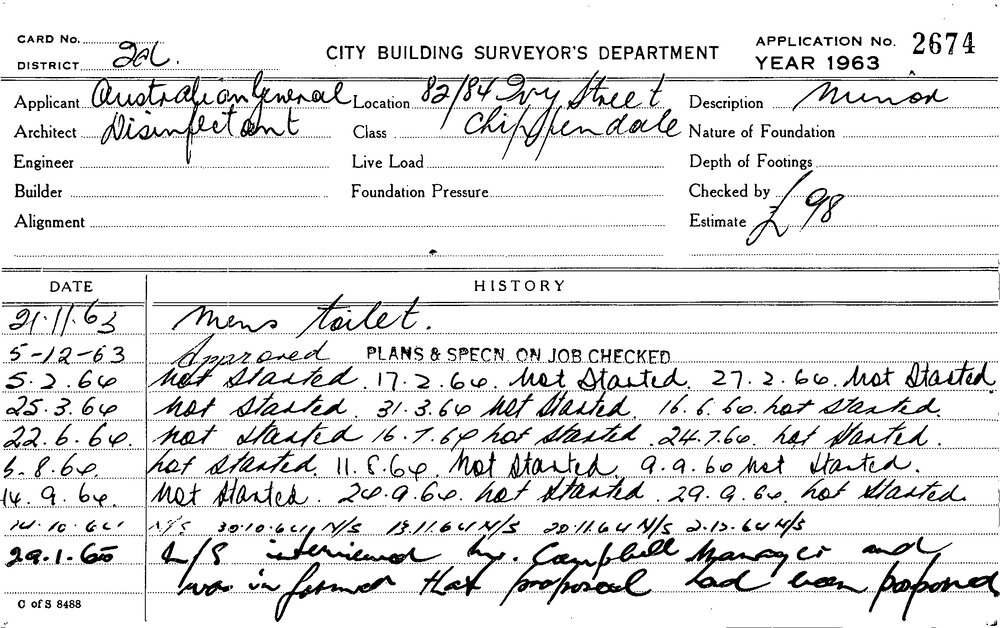 CARD No.
DISTRICT 2d.
CITY BUILDING SURVEYOR'S DEPARTMENT
APPLICATION No. 2674
YEAR 1963
Applicant Australian General Location 82/84 Ivy Street Description Minor
Architect Disinfectant Class Chippendale Nature of Foundation
Engineer Live Load Depth of Footings
Builder Foundation Pressure Checked by
Alignment Estimate £98
DATE HISTORY
21.11.63 Mens toilet.
5-12-63 Approved PLANS & SPECN. ON JOB CHECKED
5.2.64 Not Started. 17.2.64. Not Started. 27.2.64. Not Started.
25.3.64 Not Started. 31.3.64 Not Started. 16.6.64. Not Started.
22.6.64. Not Started 16.7.64 Not Started. 24.7.64. Not Started.
6.8.64. Not Started. 11.8.64. Not Started. 9.9.64 Not Started.
14.9.64 Not Started. 24.9.64. Not Started. 29.9.64. Not Started.
14.10.64 N/S 30.10.64 N/S 13.11.64 N/S 20.11.64 N/S 2.12.64 N/S
29.1.65 interviewed Mr. Campbell Manager and
was informed that proposal had been
C of S 8488